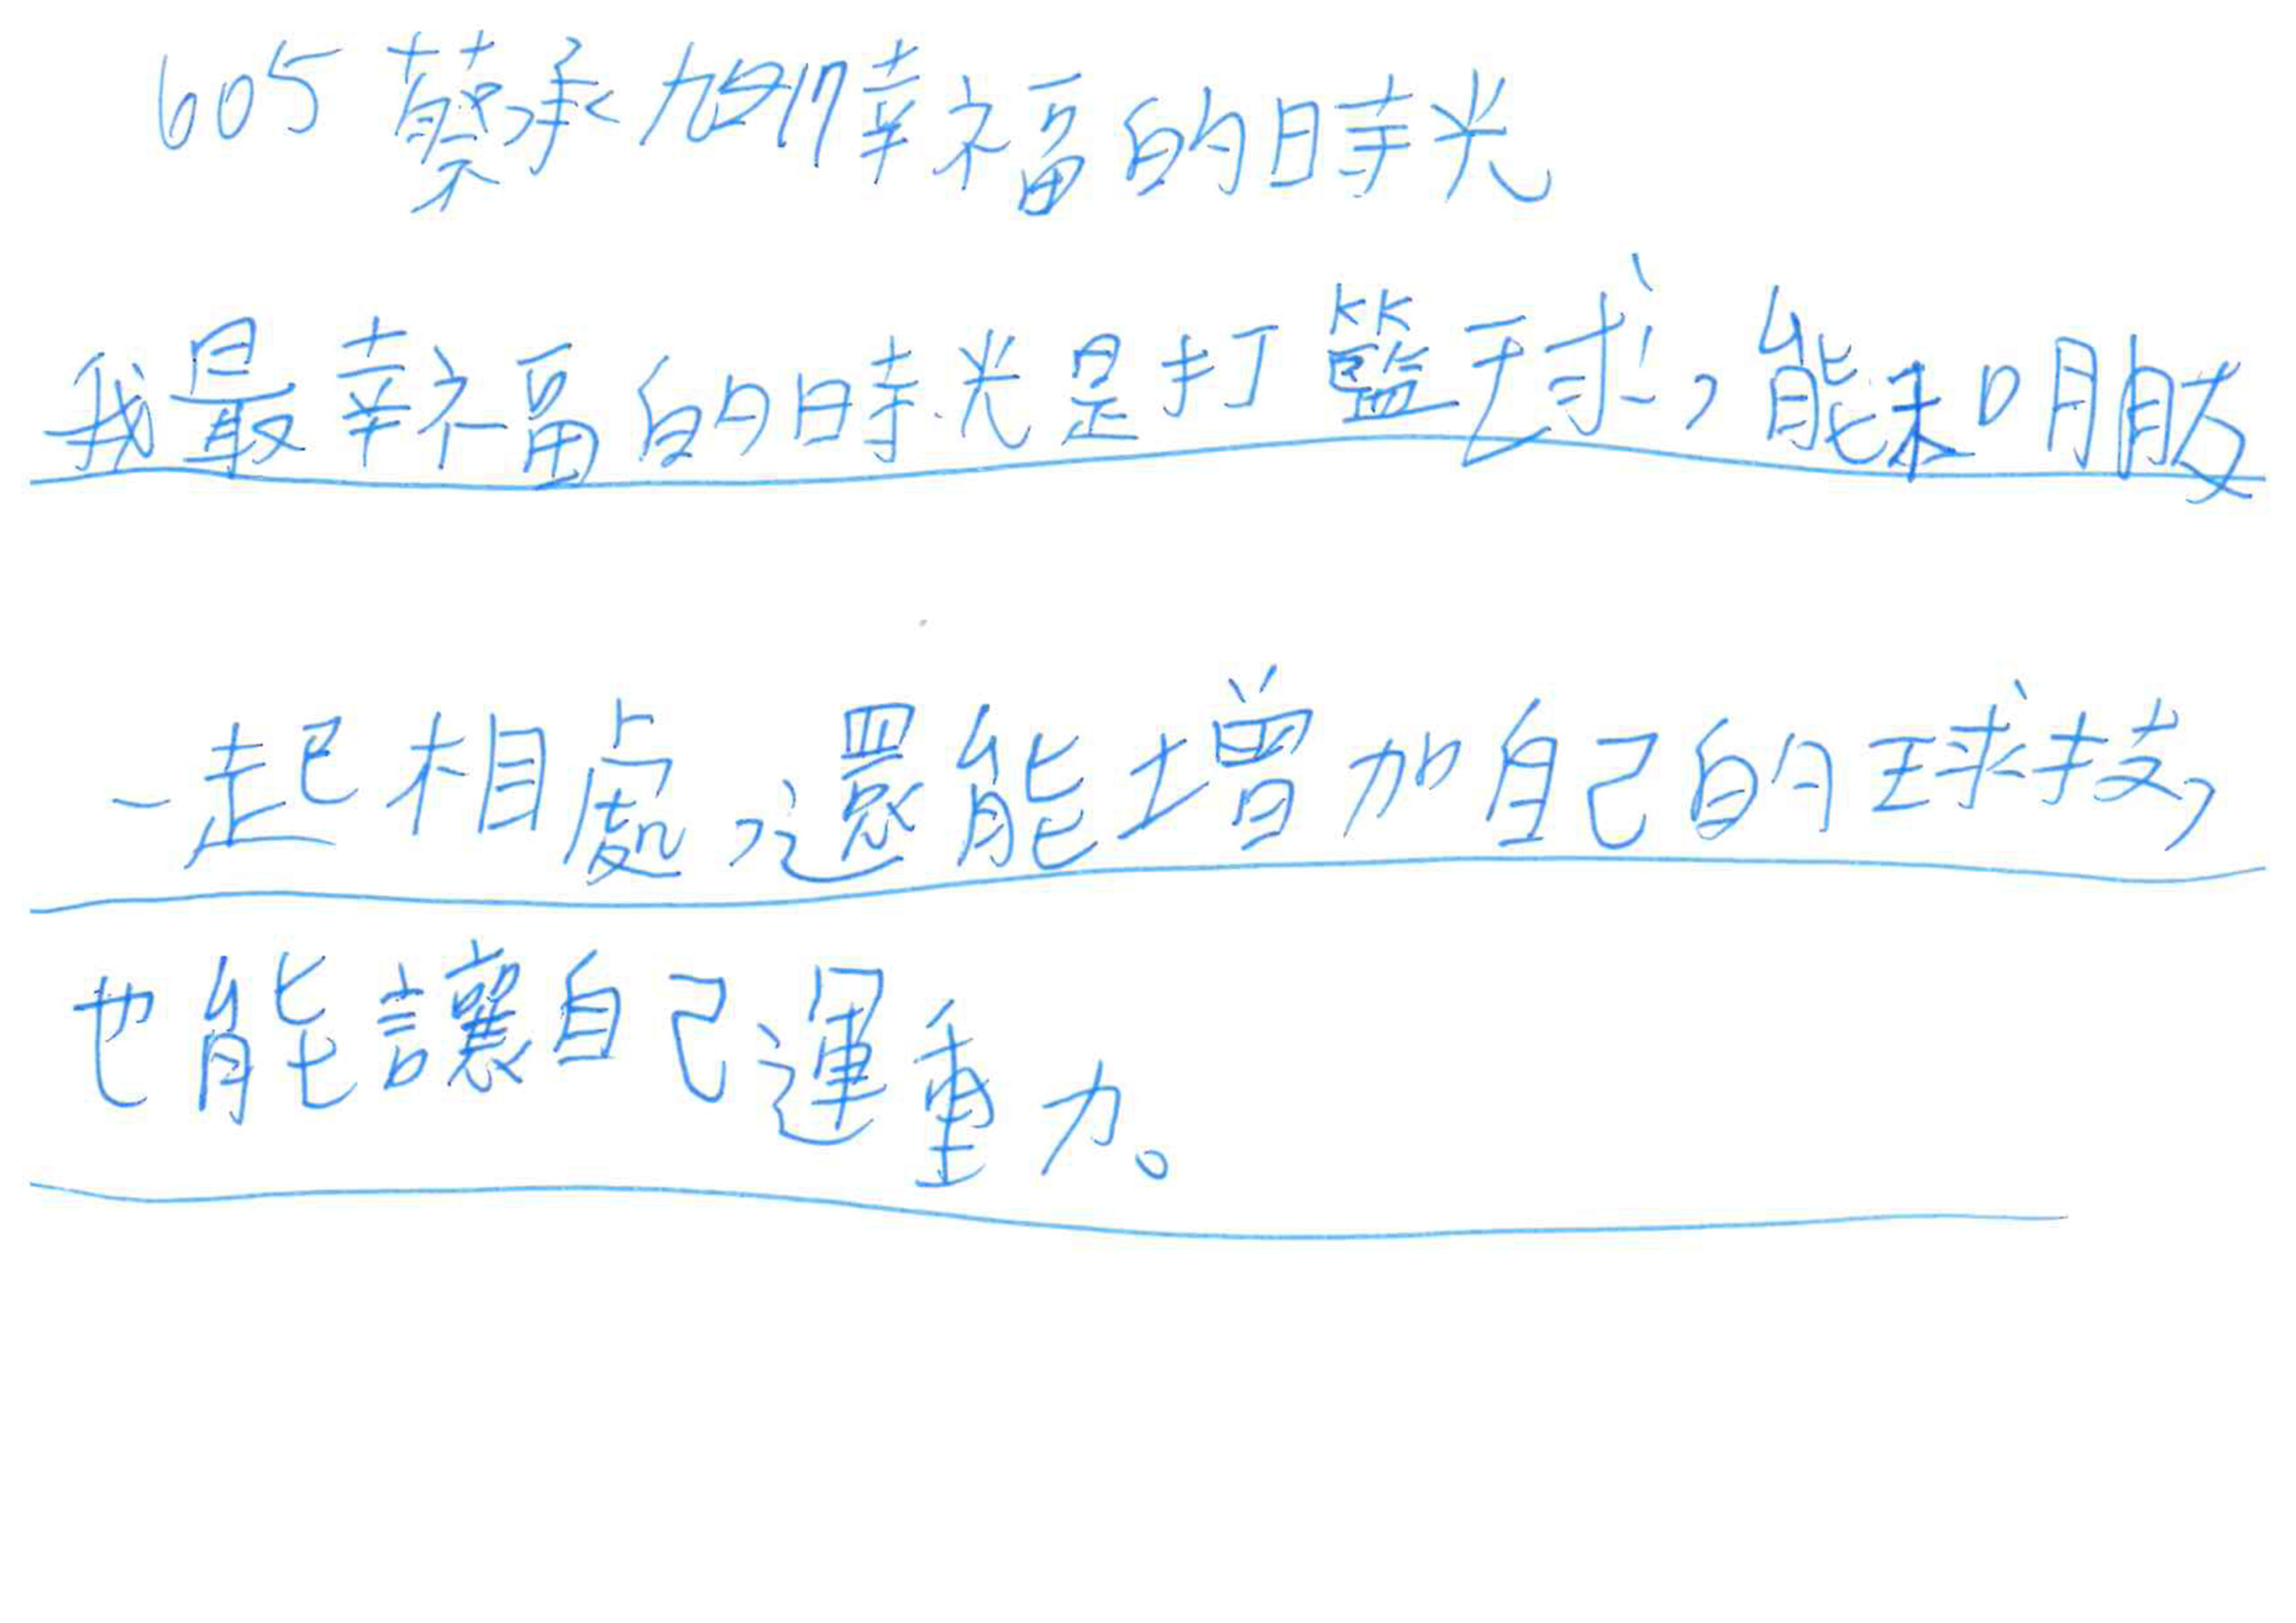 605 蔡承 17 幸福的時光
我最幸福的時光是打籃球,能和朋友
一起相處,還能增加自己的球技,
也能讓自己運動。